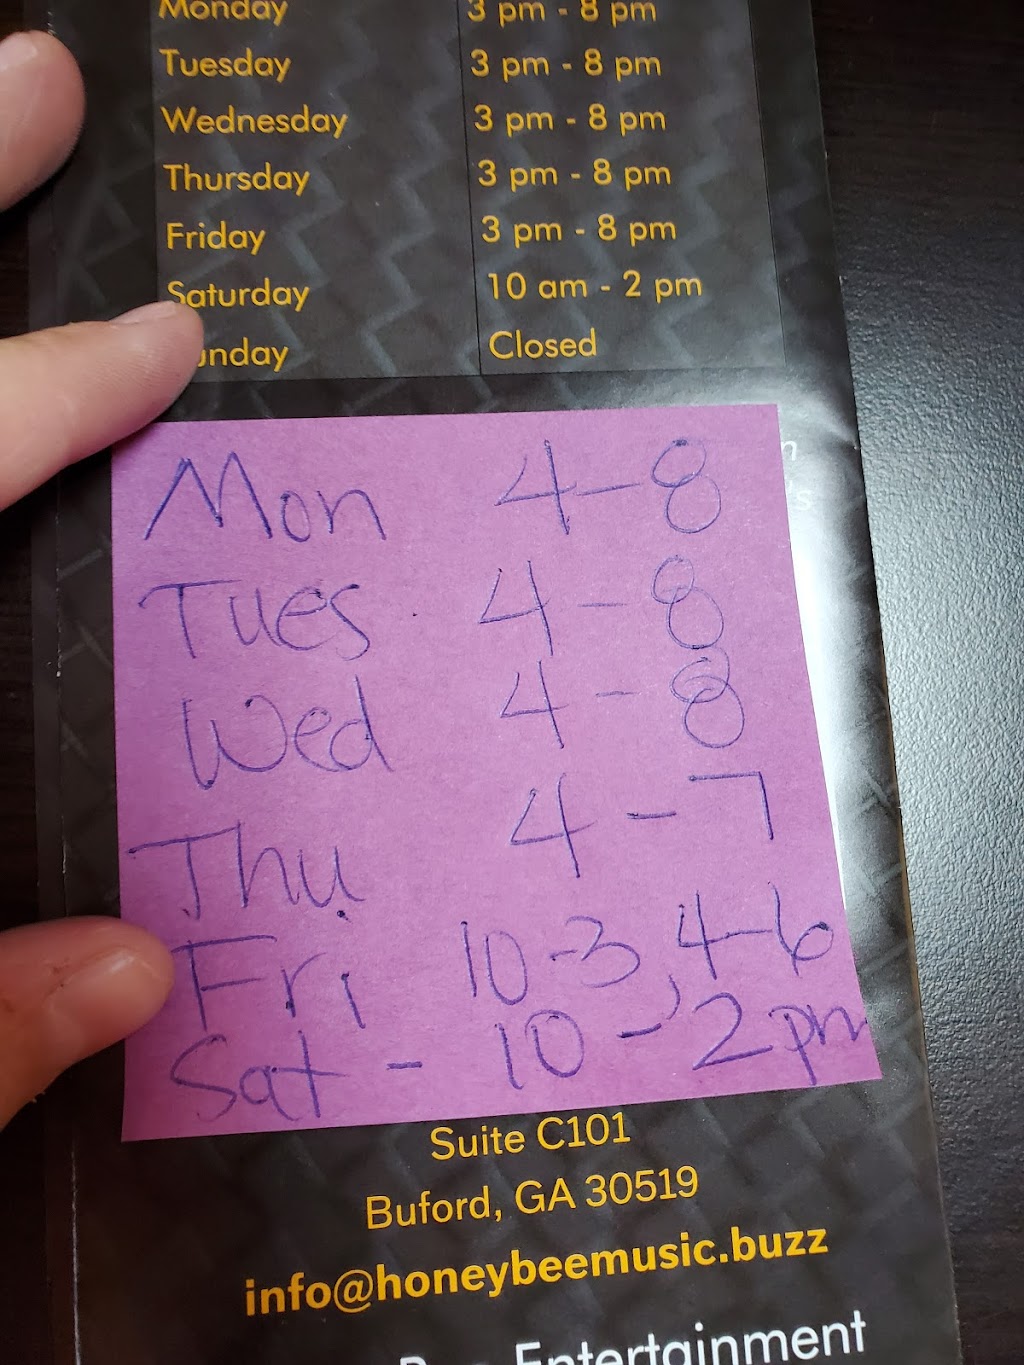 Monday 3 pm - 8 pm
Tuesday 3 pm - 8 pm
Wednesday 3 pm - 8 pm
Thursday 3 pm - 8 pm
Friday 3 pm - 8 pm
Saturday 10 am - 2 pm
unday Closed
Mon 4-8
Tues 4-8
Wed 4-8
Thu 4-7
Fri 10-3, 4-6
Sat - 10-2pm
Suite C101
Buford, GA 30519
info@honeybeemusic.buzz
Entertainment